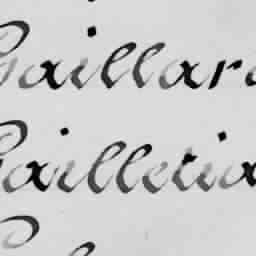 Gaillar
Gailletia